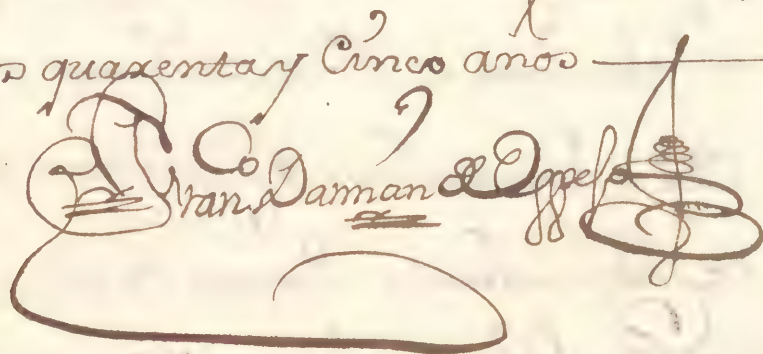 quarenta y Cinco años
Fran.co Damian de